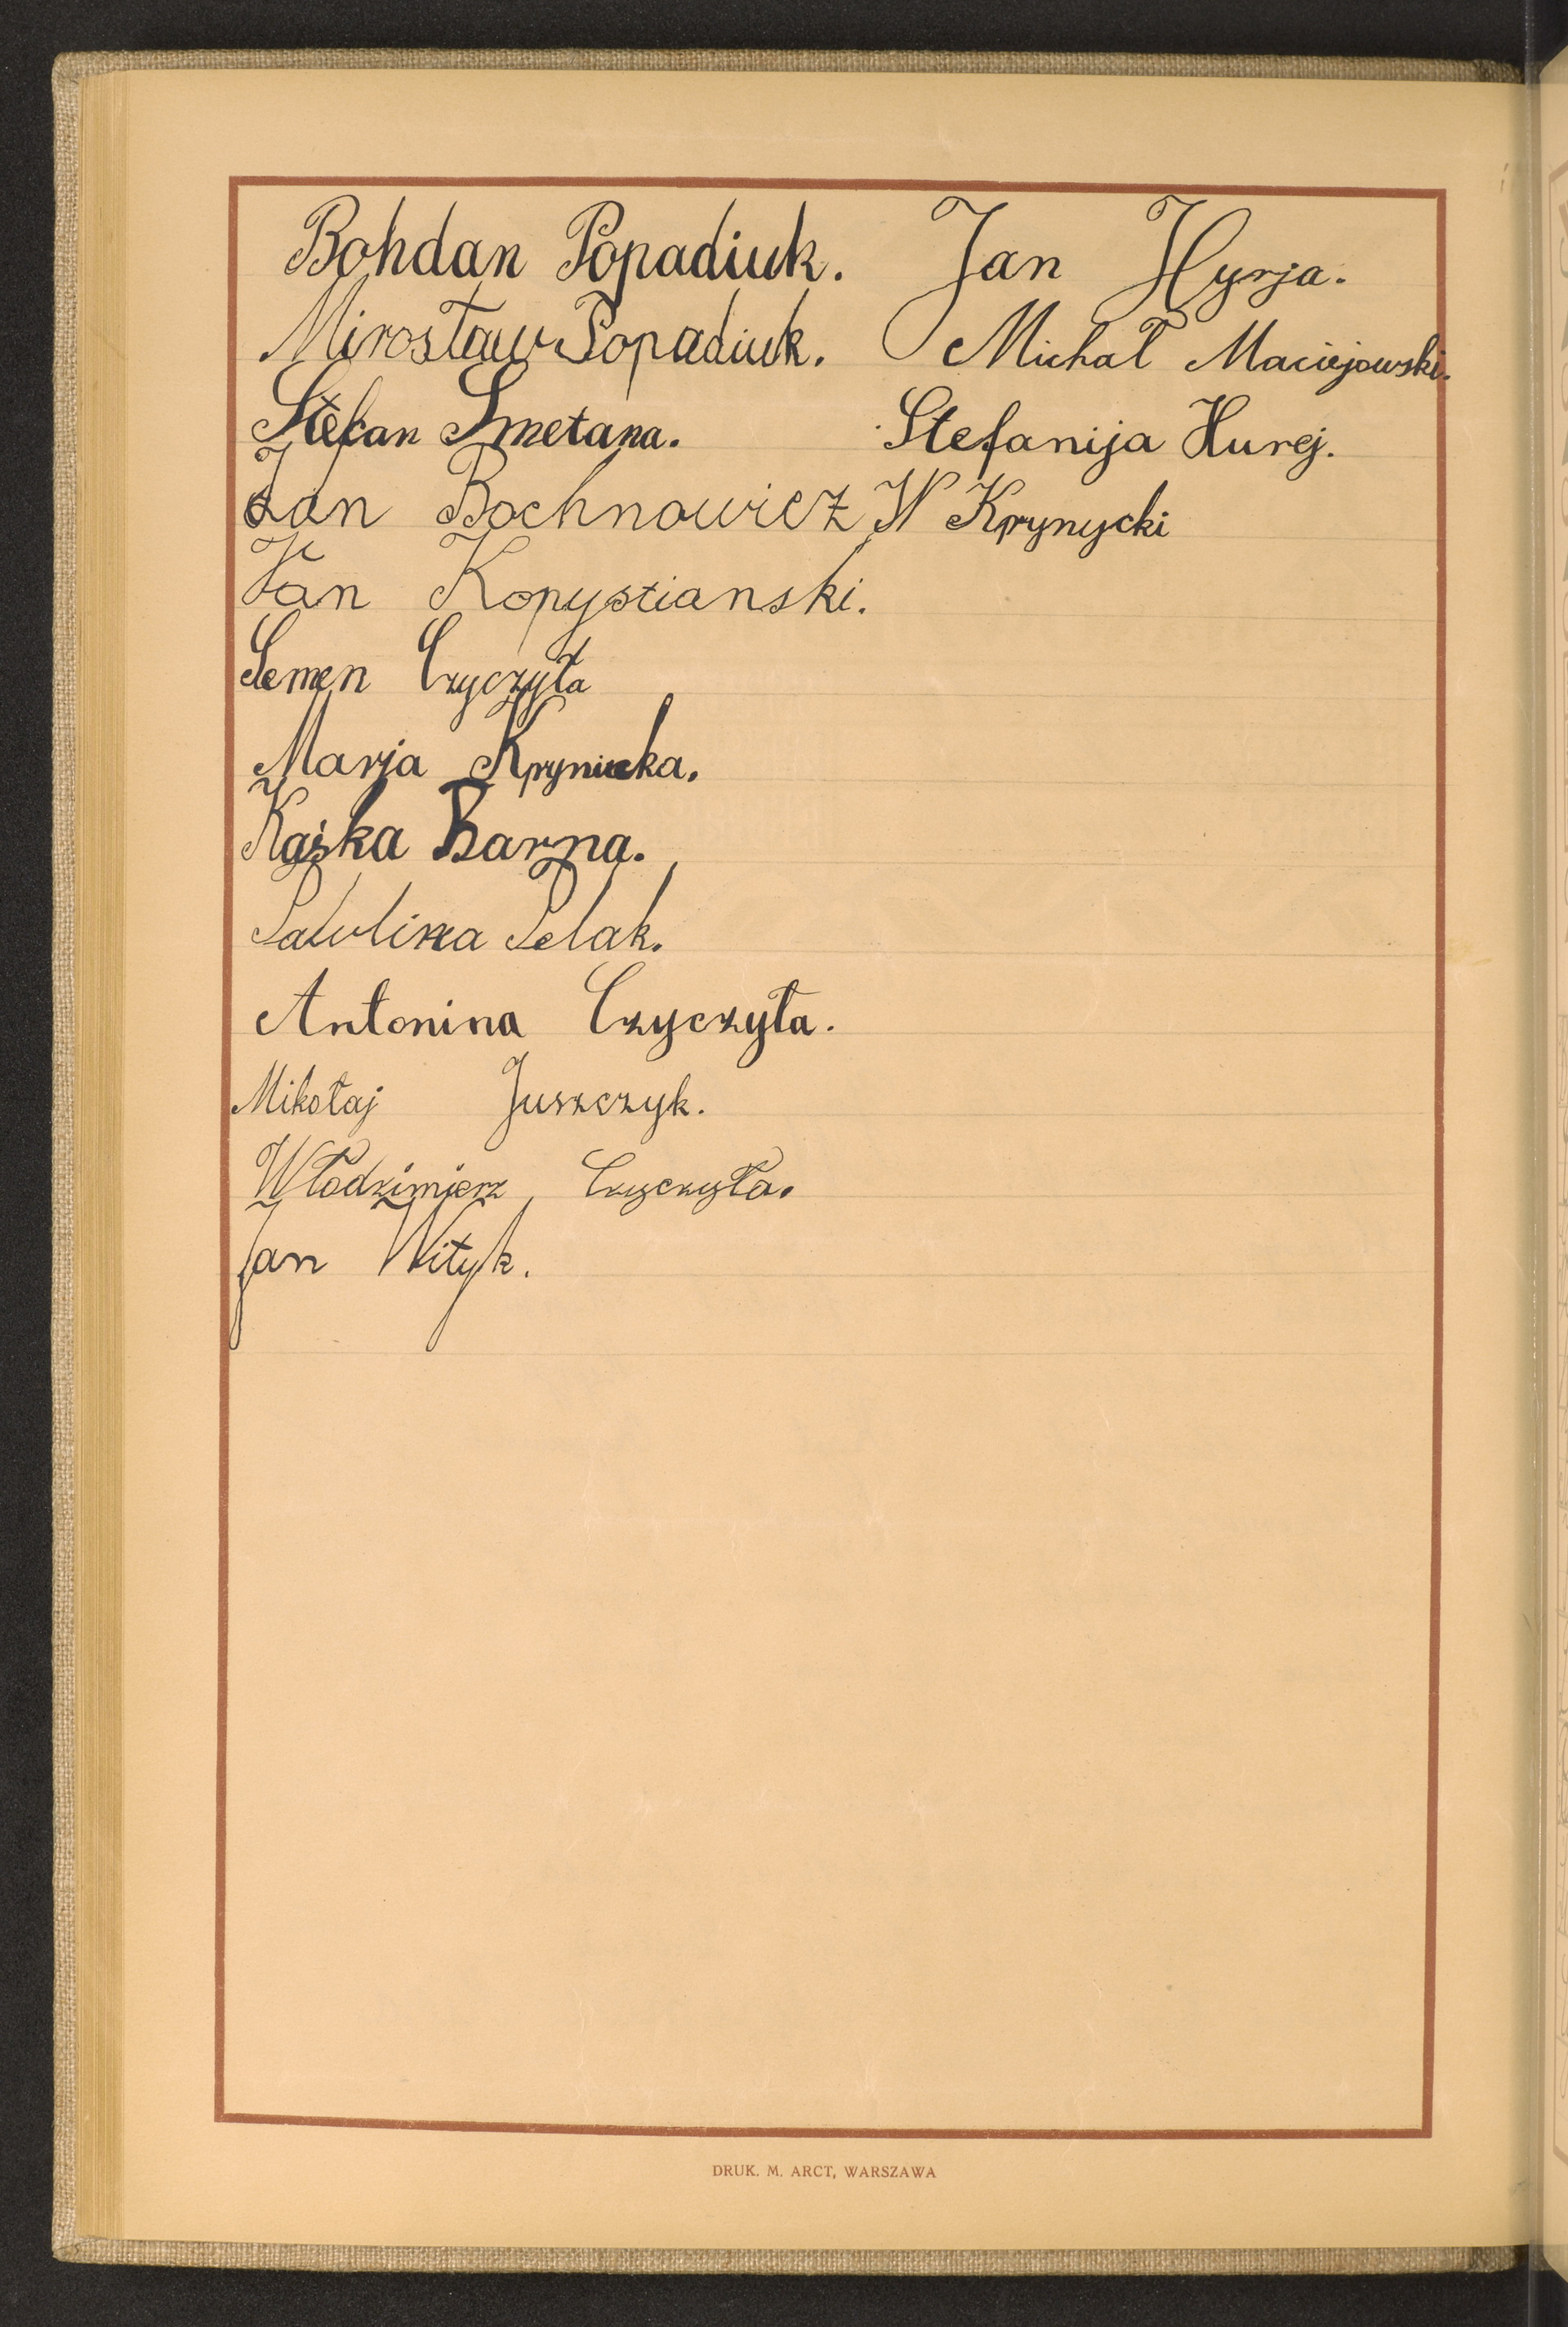 Bohdan Popadiuk. Jan Hyrja.
Mirosław Popadiuk. Michał Maciejowski.
Stefan Smetana. Stefanija Hurej.
Jan Bochnowicz W Krynycki
Jan Kopystianski.
Semen Czyczyła
Marja Krynicka.
Kaśka Barna.
Pawlina Pelak.
Antonina Czyczyła.
Mikołaj Juszczyk.
Włodzimierz Czyczyła.
Jan Wityk.
DRUK. M. ARCT, WARSZAWA